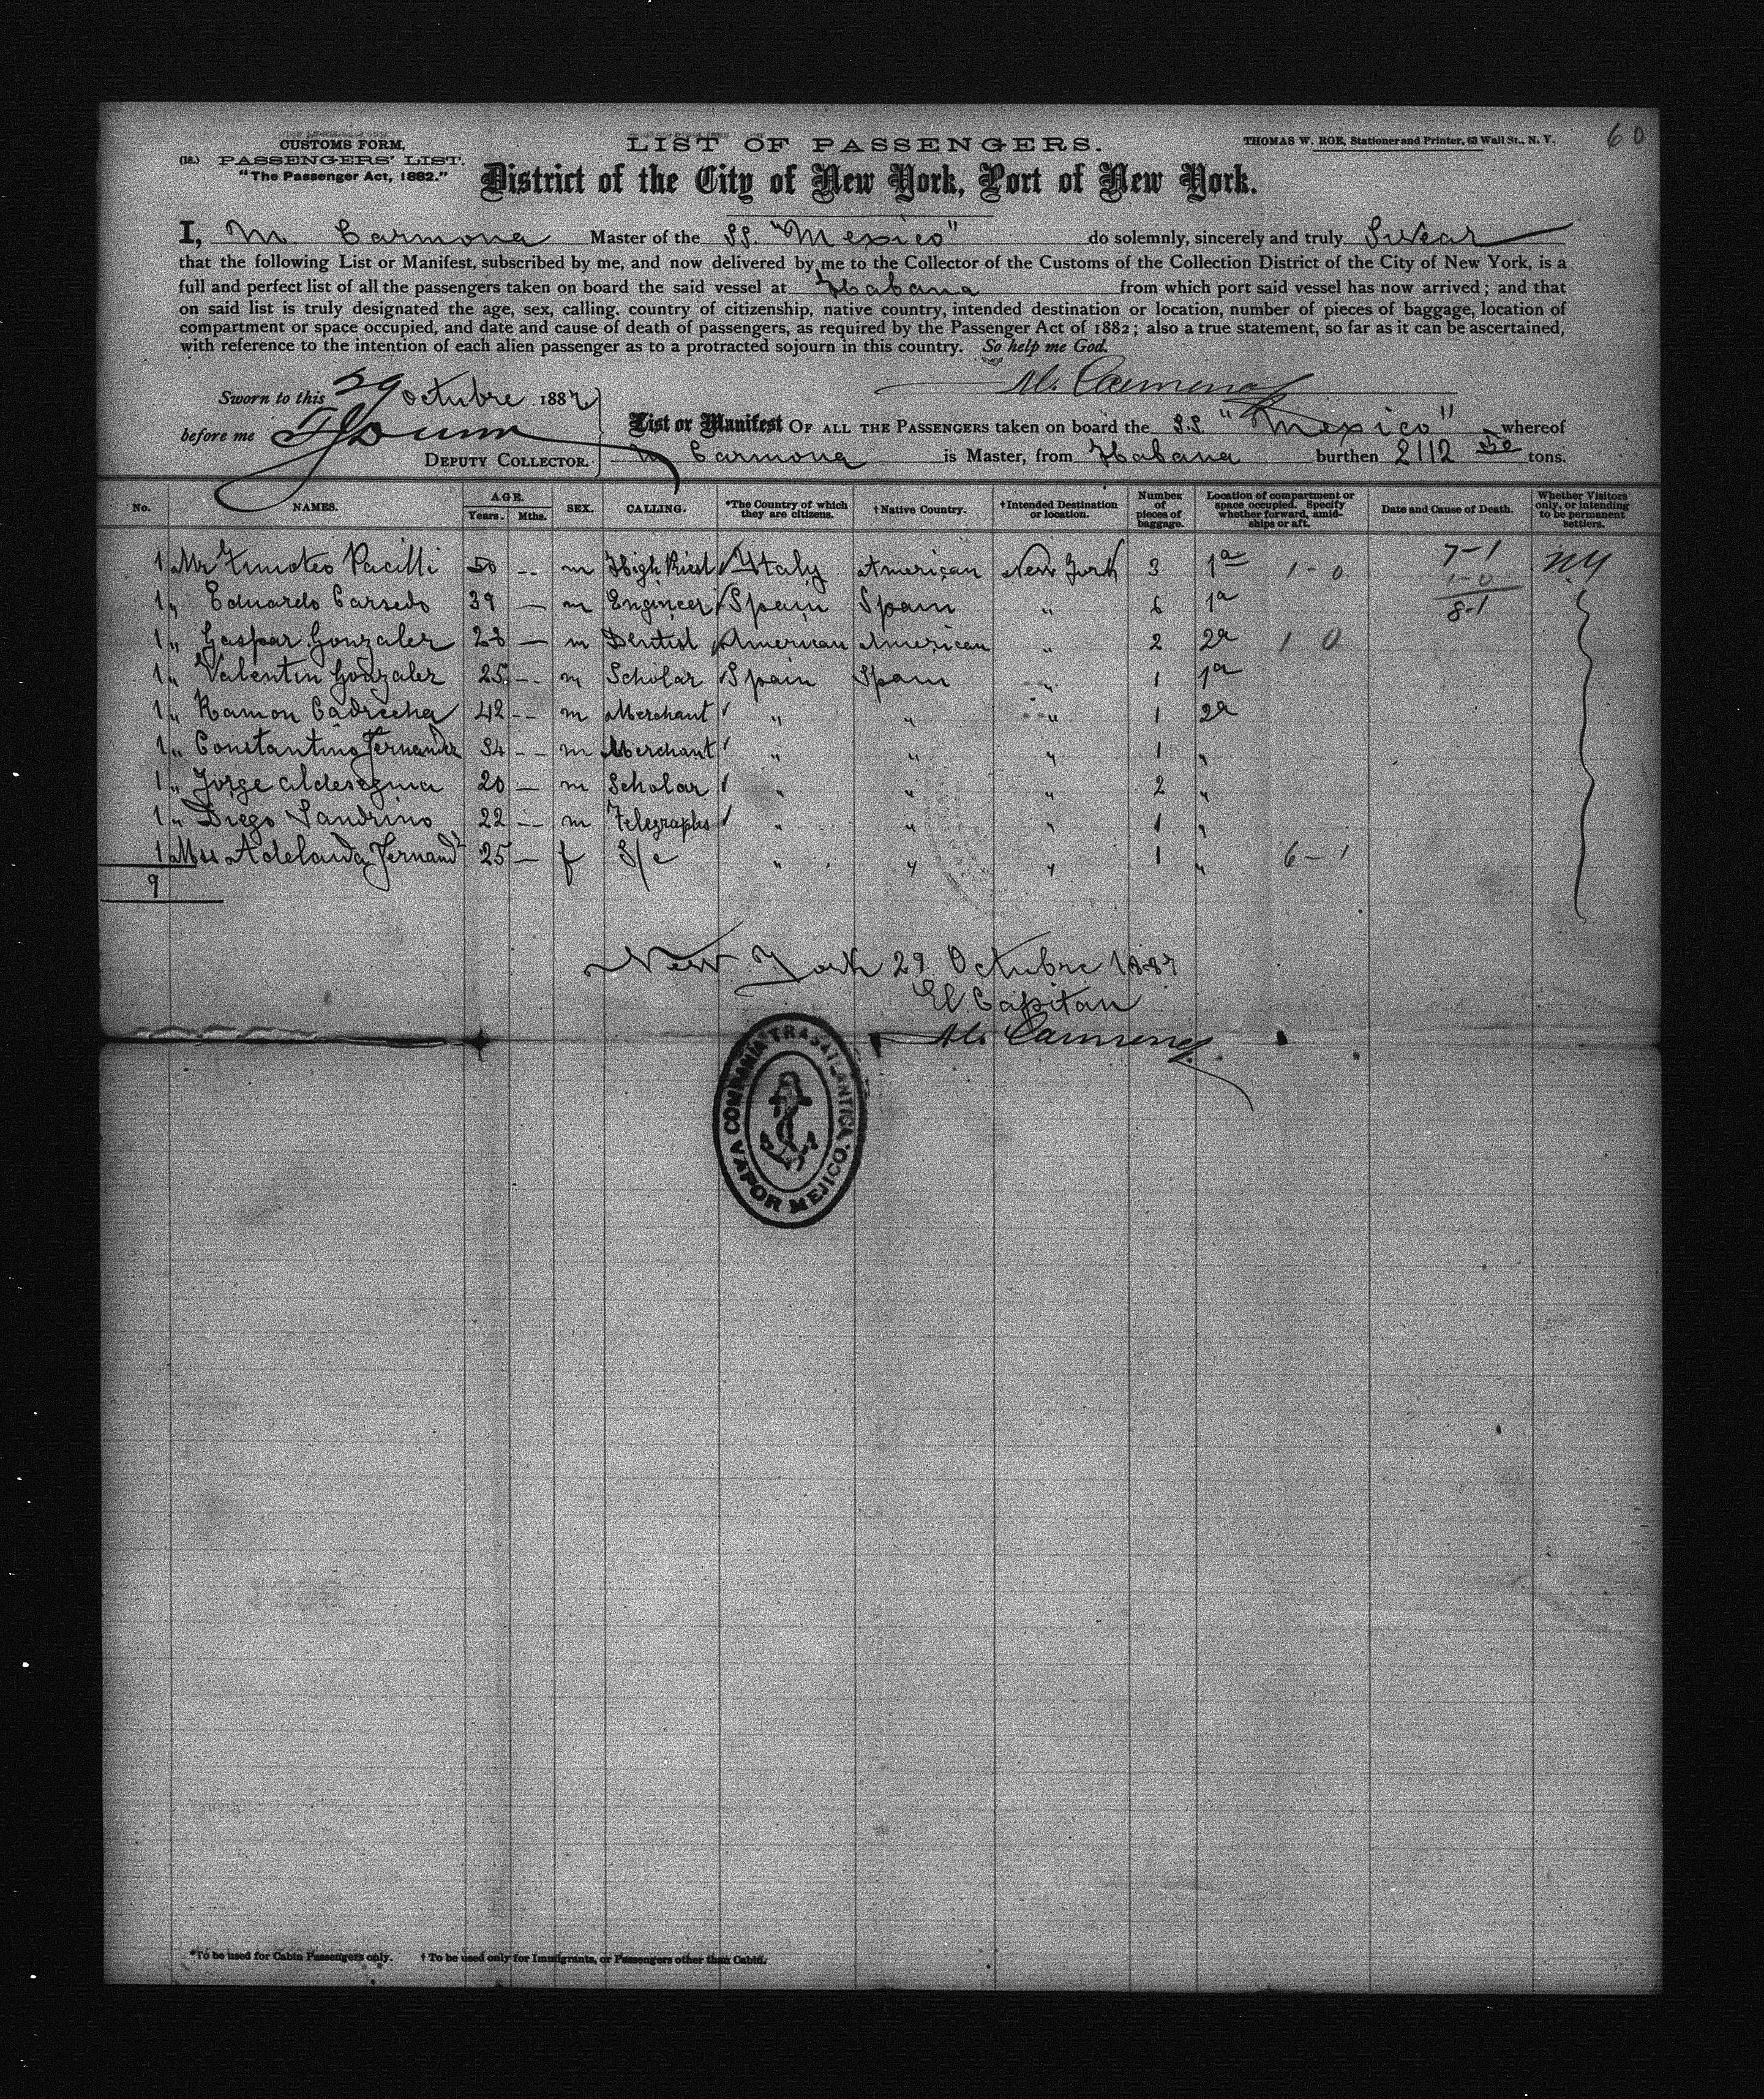 60
CUSTOMS FORM,
(18.) PASSENGERS' LIST.
"The Passenger Act, 1882."
LIST OF PASSENGERS.
THOMAS W. ROE, Stationer and Printer, 63 Wall St., N. Y.
District of the City of New York, Port of New York.
I, M. Carmona Master of the SS. "Mexico" do solemnly, sincerely and truly Swear
that the following List or Manifest, subscribed by me, and now delivered by me to the Collector of the Customs of the Collection District of the City of New York, is a
full and perfect list of all the passengers taken on board the said vessel at Habana from which port said vessel has now arrived; and that
on said list is truly designated the age, sex, calling, country of citizenship, native country, intended destination or location, number of pieces of baggage, location of
compartment or space occupied, and date and cause of death of passengers, as required by the Passenger Act of 1882; also a true statement, so far as it can be ascertained,
with reference to the intention of each alien passenger as to a protracted sojourn in this country. So help me God.
M. Carmona
Sworn to this 29 Octubre 1887
before me
DEPUTY COLLECTOR.
List or Manifest OF ALL THE PASSENGERS taken on board the S.S. "Mexico" whereof
M Carmona is Master, from Habana burthen 2112 tons.
No. NAMES. AGE. Years. Mths. SEX. CALLING. *The Country of which they are citizens. †Native Country. †Intended Destination or location. Number of pieces of baggage. Location of compartment or space occupied. Specify whether forward, amidships or aft. Date and Cause of Death. Whether Visitors only, or intending to be permanent settlers.
1 Mr Timoteo Pacilli 50 -- m High Priest Ytaly American New York 3 1a 1-0 7-1 NY
1 " Eduardo Carsedo 39 — m Engineer Spain Spain " 6 1a 1-0 8-1
1 " Gaspar Gonzalez 28 — m Dentist American American " 2 2a 1 0
1 " Valentin Gonzalez 25 -- m Scholar Spain Spain " 1 1a
1 " Ramon Cadrecha 42 -- m Merchant " " " 1 2a
1 " Constantino Fernandez 34 -- m Merchant " " " 1 "
1 " Jorge 20 — m Scholar " " " 2 "
1 " Diego Sandrino 22 -- m Telegraphs " " " 1 "
1 Mss Adelaida Fernandz 25 — f S/c " " " 1 " 6-1
9
New York 29 Octubre 1887
El Capitan
M. Carmona
COMPAÑIA TRASATLANTICA.
VAPOR MEJICO.
*To be used for Cabin Passengers only. †To be used only for Immigrants, or Passengers other than Cabin.